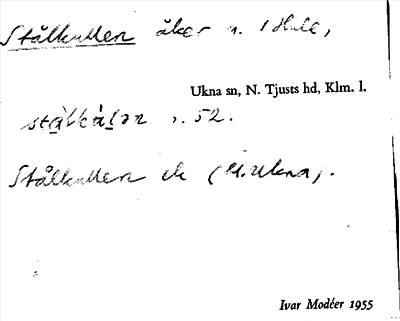 Stålkullen åker n. 1 Hule,
Ukna sn, N. Tjusts hd, Klm. l.
52.
Stålkullen ek (M. Ukna).
Ivar Modéer 1955